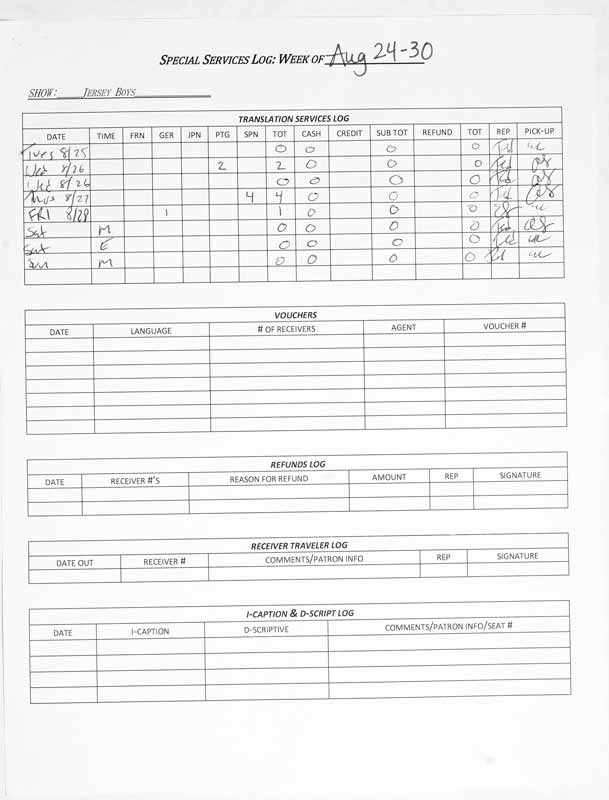 SPECIAL SERVICES LOG: WEEK OF Aug 24-30
SHOW: JERSEY BOYS
TRANSLATION SERVICES LOG
DATE TIME FRN GER JPN PTG SPN TOT CASH CREDIT SUB TOT REFUND TOT REP PICK-UP
Tues 8/25 0 0 0 0 Ted
Wed 8/26 2 2 0 0 0 Ted
Wed 8/26 0 0 0 0 Ted
Thus 8/27 4 4 0 0 0 Ted
FRI 8/28 1 1 0 0 0
Sat M 0 0 0 0 Ted
Sat E 0 0 0 0 Ted
Sun M 0 0 0 0 Ted
VOUCHERS
DATE LANGUAGE # OF RECEIVERS AGENT VOUCHER #
REFUNDS LOG
DATE RECEIVER #'S REASON FOR REFUND AMOUNT REP SIGNATURE
RECEIVER TRAVELER LOG
DATE OUT RECEIVER # COMMENTS/PATRON INFO REP SIGNATURE
I-CAPTION & D-SCRIPT LOG
DATE I-CAPTION D-SCRIPTIVE COMMENTS/PATRON INFO/SEAT #